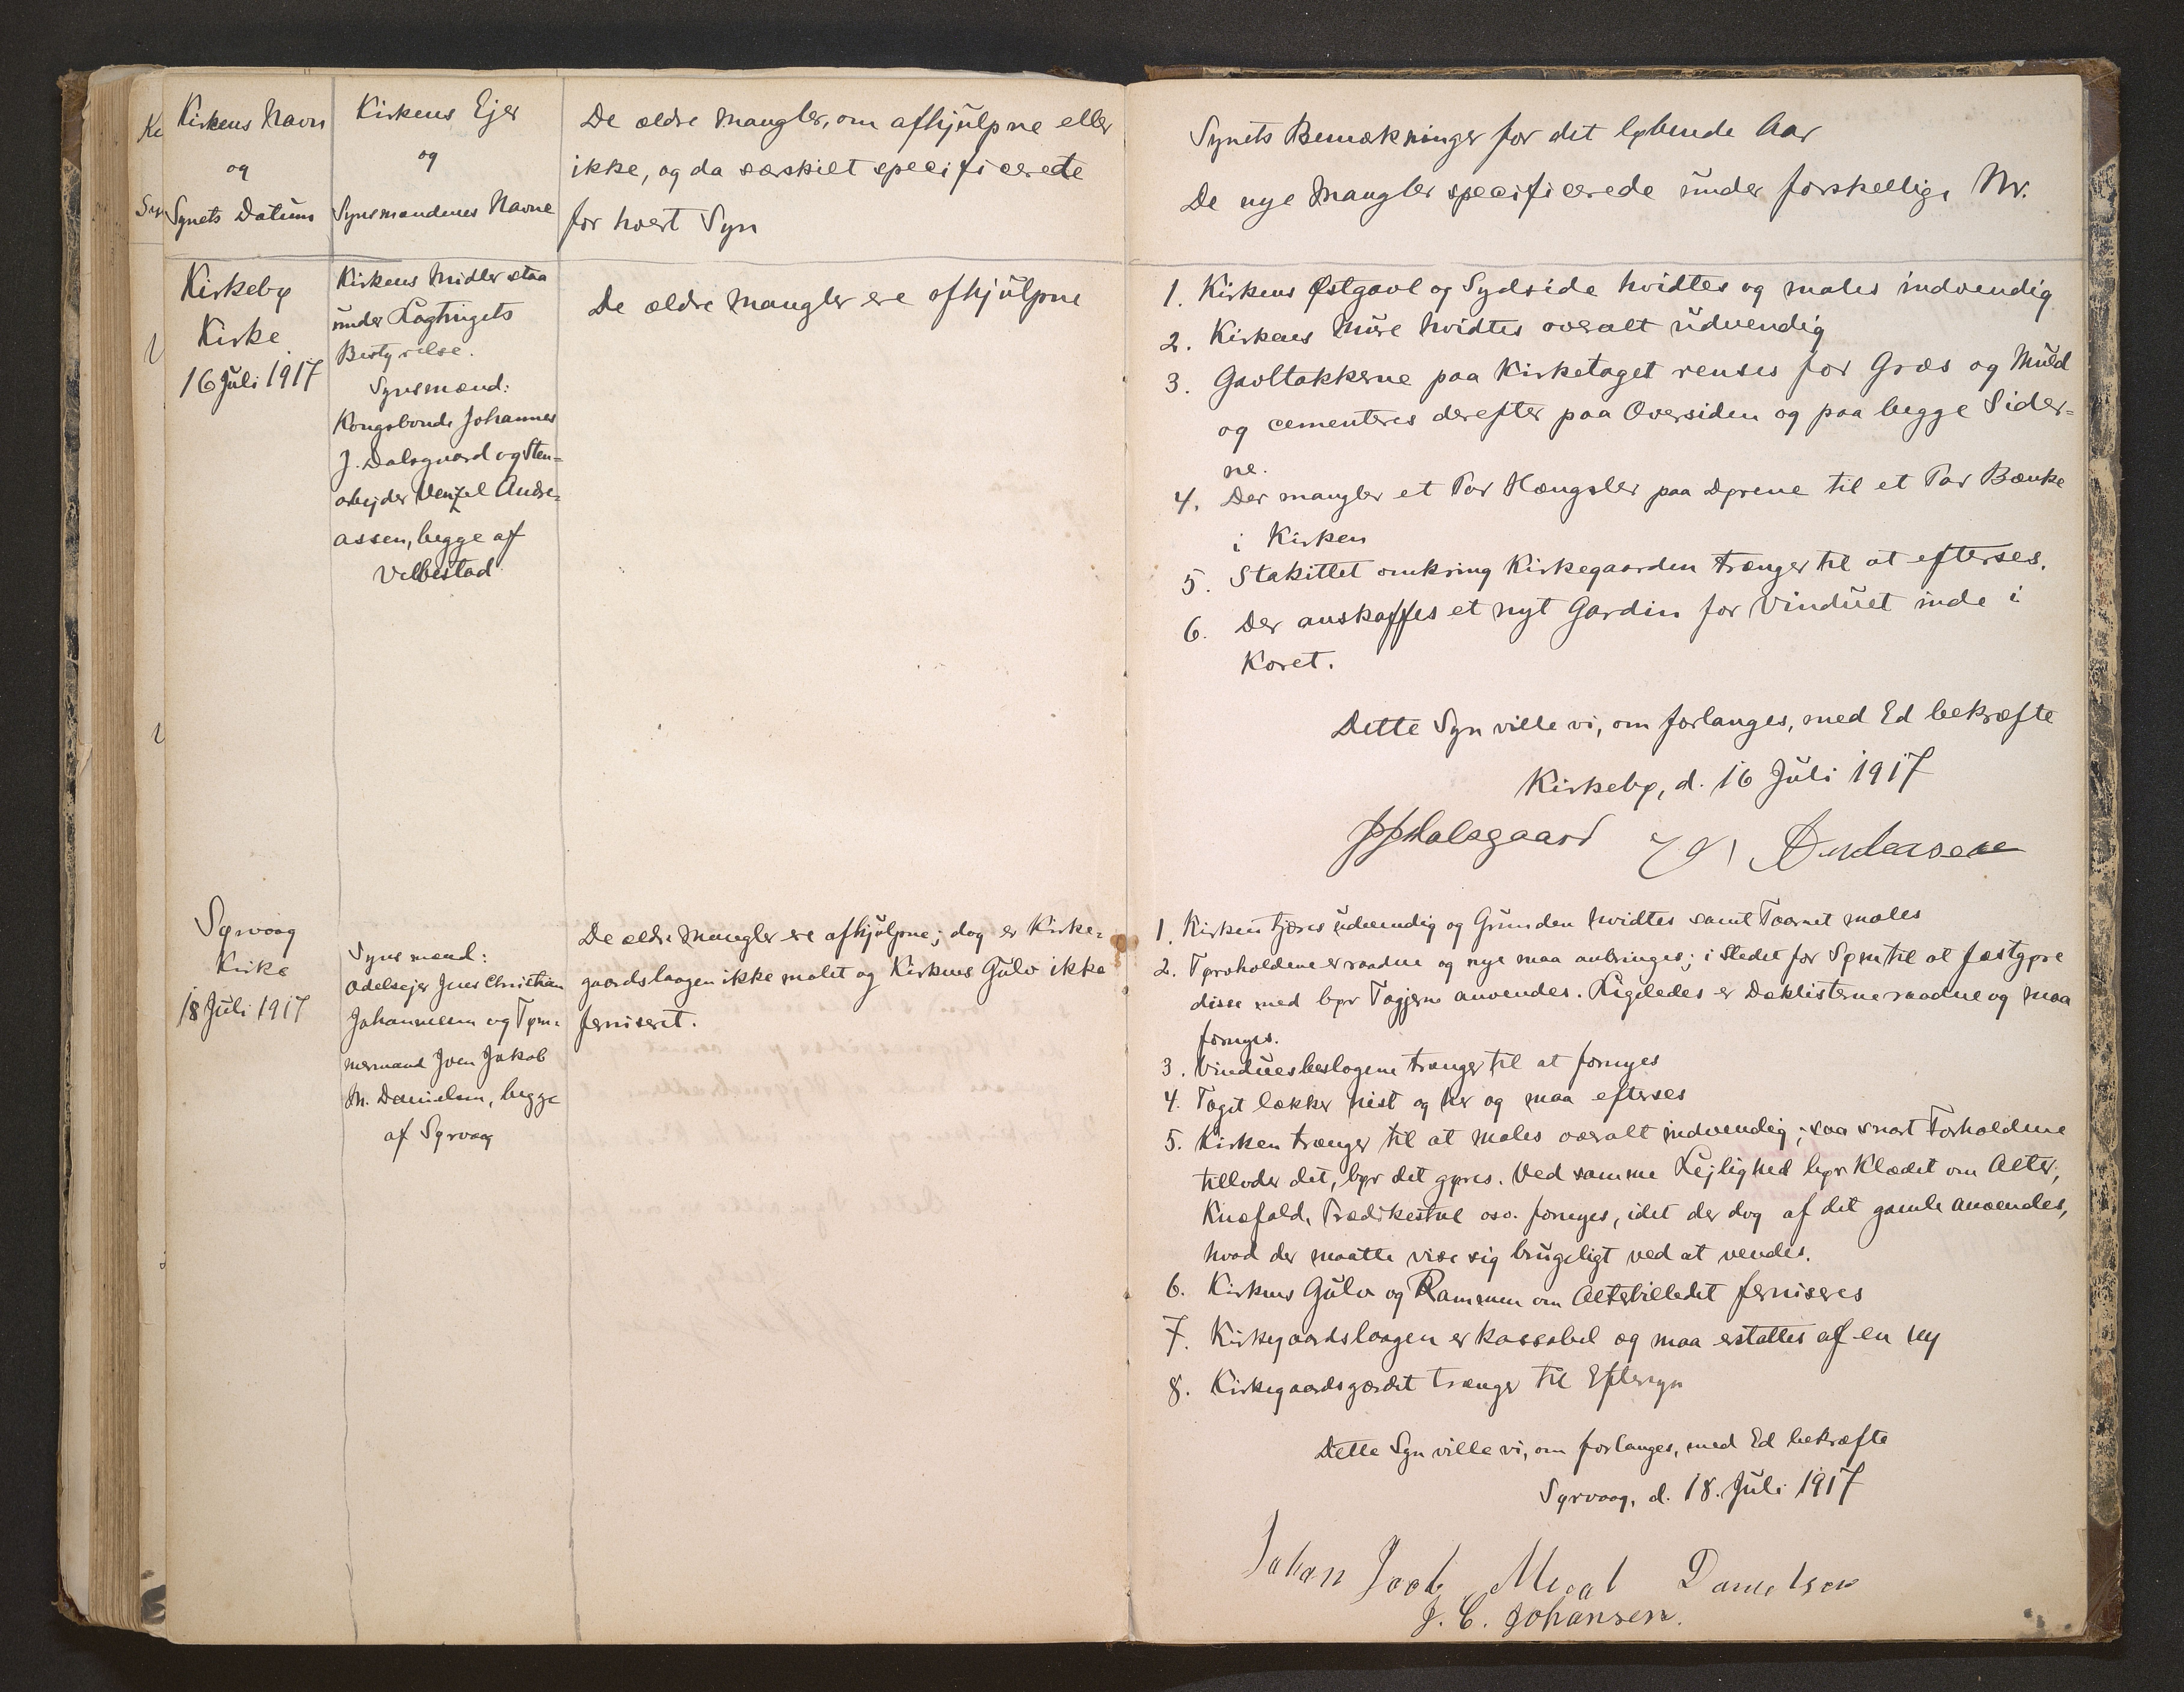 Kirkens Navn
og
Synets Datum
Kirkens Ejer
og
Synsmændenes Navne
De ældre Mangler, om afhjulpne eller
ikke, og da særskilt specificerede
for hvert Syn
Kirkebø
Kirke
16 Juli 1917
Kirkens Midler staa
under Lagtingets
Bestyrelse.
Synsmænd:
Kongsbonde Johannes
J. Dalsgaard og Sten=
arbejder Venzel Andre=
assen, begge af
Velbestad
De ældre Mangler ere afhjulpne
Sørvaag
Kirke
18 Juli 1917
Synsmænd:
Odelsejer Jens Christian
Johannesen og Tøm=
mermand Joen Jakob
M. Danielsen, begge
af Sørvaag
De ældre Mangler ere afhjulpne; dog er Kirke=
gaardslaagen ikke malet og Kirkens Gulv ikke
ferniseret.
Synets Bemærkninger for det løbende Aar
De nye Mangler specificerede under forskellige Nr.
1. Kirkens Østgavl og Sydside hvidtes og males indvendig
2. Kirkens Mure hvidtes overalt udvendig
3. Gavltakkerne paa Kirketaget renses for Græs og Muld
og cementeres derefter paa Oversiden og paa begge Sider=
ne.
4. Der mangler et Par Hængsler paa Dørene til et Par Bænke
i Kirken
5. Stakittet omkring Kirkegaarden trænger til at efterses.
6. Der anskaffes et nyt Gardin for Vinduet inde i
Koret.
Dette Syn ville vi, om forlanges, med Ed bekræfte
Kirkebø, d. 16 Juli 1917
JJDalsgaard Andersen
1. Kirken tjæres udvendig og Grunden hvidtes samt Taarnet males
2. Tørvholdene er raadne og nye maa anbringes; i Stedet for Søm til at fastgøre
disse med bør Tagjern anvendes. Ligeledes er Dæklisterne raadne og maa
fornyes.
3. Vinduesbeslagene trænger til at fornyes
4. Taget lækker hist og her og maa efterses
5. Kirken trænger til at males overalt indvendig; saa snart Forholdene
tillader det, bør det gøres. Ved samme Lejlighed bør Klædet om Alter,
Knæfald, Prædikestol osv. fornyes, idet der dog af det gamle anvendes,
hvad der maatte vise sig brugeligt ved at vendes.
6. Kirkens Gulv og Rammen om Alterbilledet ferniseres
7. Kirkegaardslaagen er kassabel og maa erstattes af en ny
8. Kirkegaardsgærdet trænger til Eftersyn
Dette Syn ville vi, om forlanges, med Ed bekræfte
Sørvaag, d. 18. Juli 1917
Johan Danielsen
J. C. Johansen.